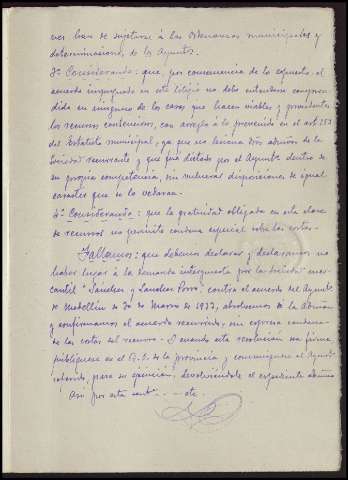 nes han de sujetarse á las Ordenanzas municipales y
determinaciones de los Ayuntos.
3º Considerando: que, por consecuencia de lo expuesto el
acuerdo impugnado en este litigio no debe entenderse compren
dido en ninguno de los casos que hacen viables y procedentes
los recursos contenciosos, con arreglo á lo prevenido en el art. 253
del Estatuto municipal, ya que no lesiona dros admvos de la
Sociedad recurrente y que fué dictado por el Ayuntº dentro de
su propia competencia, sin vulnerar disposiciones de igual
carácter que se lo vedaran.-
4º Considerando: que la gratuidad obligada en esta clase
de recursos no permite condena especial sobre las costas.-
Fallamos: que debemos declarar y declaramos no
haber lugar á la demanda interpuesta por la Sociedad mer-
cantil "Sanchez y Sanchez Porro" contra el acuerdo del Ayuntº
de Medellin de 30 de Marzo de 1933, absolvemos á la Admon
y confirmamos el acuerdo recurrido, sin expresa condena
de las costas del recurso. - Y cuando esta resolución sea firme
publíquese en el B. O. de la provincia y comuníquese al Ayuntº
referido para su ejecución, devolviéndole el expediente
Así por esta sentª